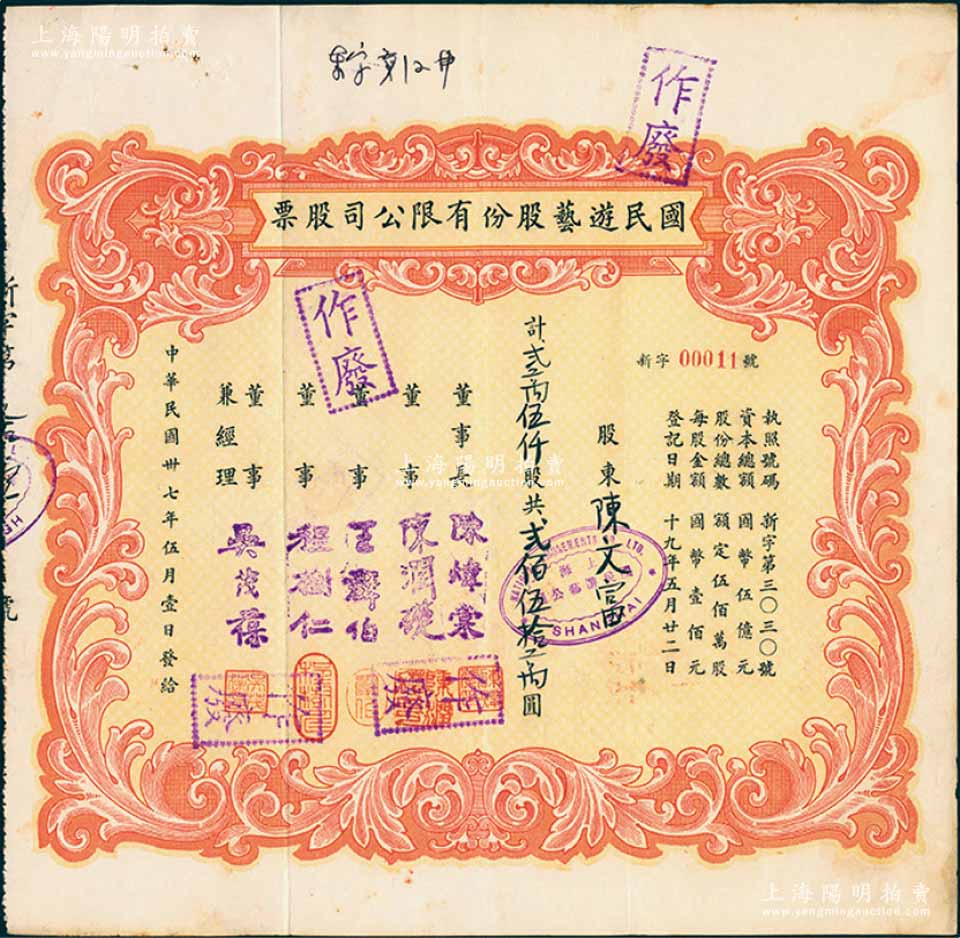 上海陽明拍賣
www.yangmingauction.com
作廢
國民遊藝股份有限公司股票
新字 00011 號
執照號碼 新字第三〇三〇號
資本總額 國幣伍億元
股份總數 額定伍佰萬股
每股金額 國幣壹佰元
登記日期 十九年五月廿二日
股東 陳文富
AMUSEMENTS
LTD.
SHANGHAI
計 貳萬伍仟股共貳佰伍拾萬圓
作廢
董事長 陳煒棠
董事
董事
董事 程樹仁
董事兼經理 吳茂蓀
中華民國卅七年伍月壹日發給
作廢
作廢
上海陽明拍賣
www.yangmingauction.com
上海陽明拍賣
www.yangmingauction.com